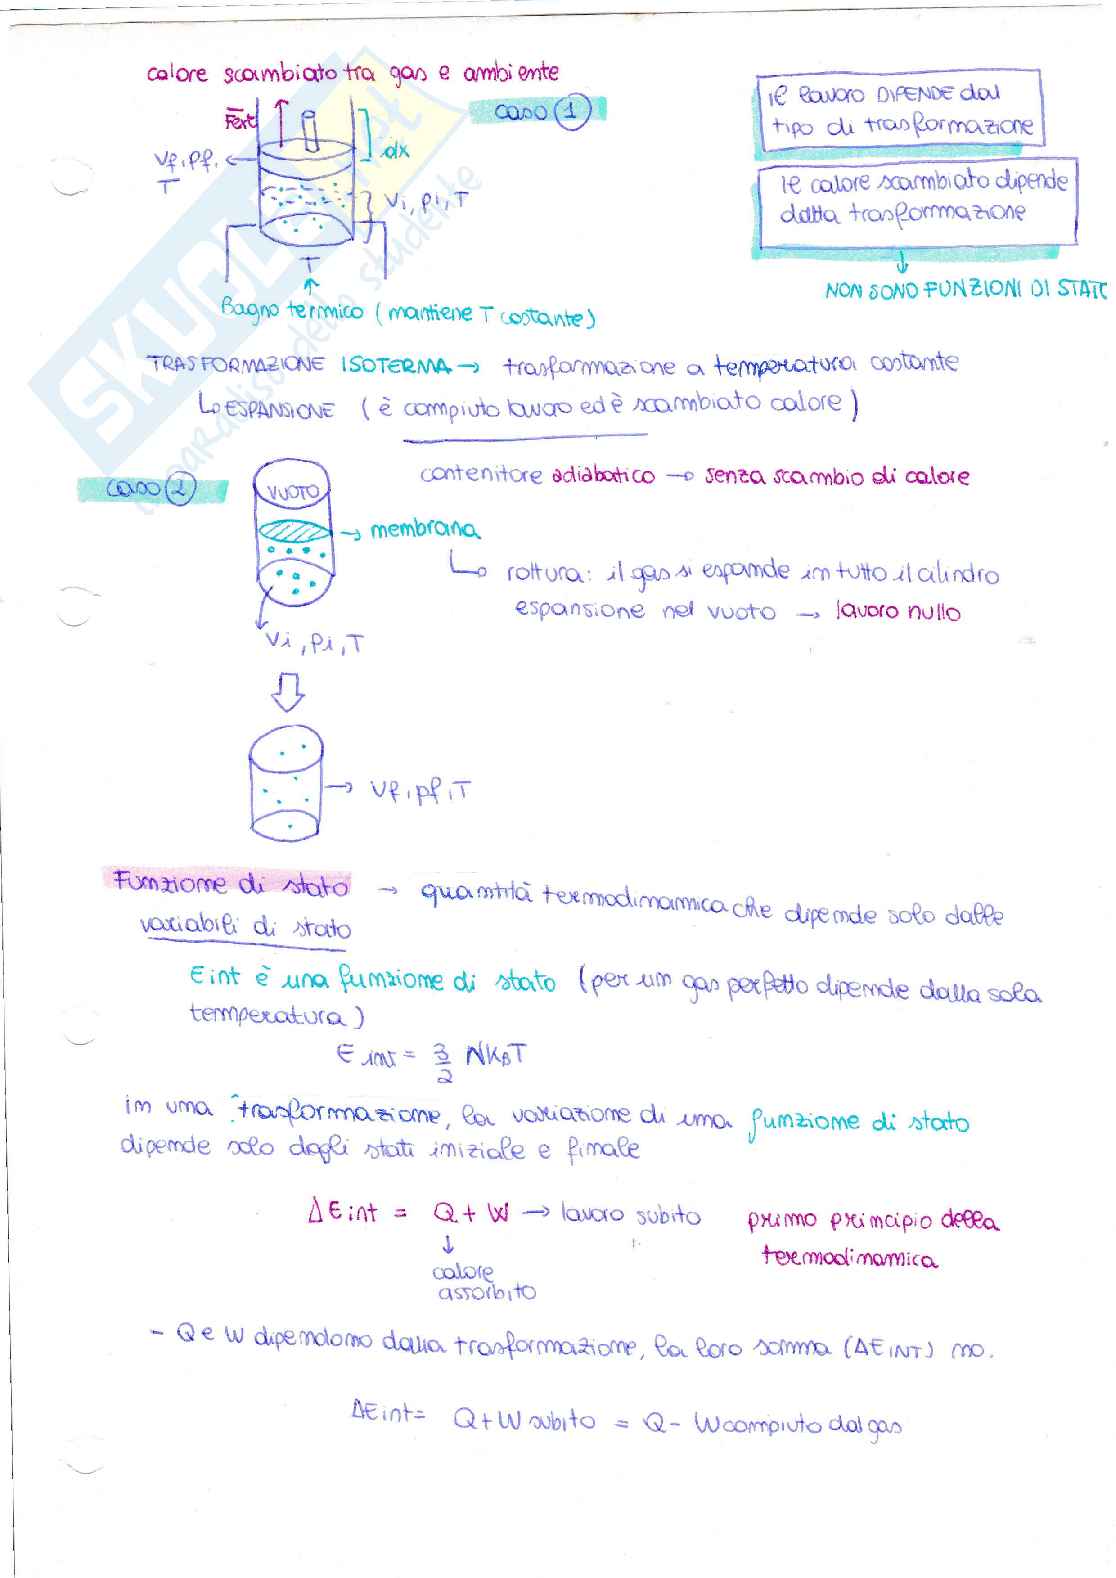 calore scambiato tra gas e ambiente
caso 1
Fext
dx
Vf, pf,
T
Vi, pi, T
T
Bagno termico (mantiene T costante)
il lavoro DIPENDE dal
tipo di trasformazione
il calore scambiato dipende
dalla trasformazione
NON SONO FUNZIONI DI STATO
TRASFORMAZIONE ISOTERMA → trasformazione a temperatura costante
↳ ESPANSIONE (è compiuto lavoro ed è scambiato calore)
caso 2
contenitore adiabatico → senza scambio di calore
VUOTO
→ membrana
↳ rottura: il gas si espande in tutto il cilindro
espansione nel vuoto → lavoro nullo
Vi, Pi, T
→ Vf, pf, T
Funzione di stato → quantità termodinamica che dipende solo dalle
variabili di stato
Eint è una funzione di stato (per un gas perfetto dipende dalla sola
temperatura)
E int = 3/2 NKBT
in una trasformazione, la variazione di una funzione di stato
dipende solo dagli stati iniziale e finale
ΔEint = Q + W → lavoro subito
primo principio della
termodinamica
↓
calore
assorbito
- Q e W dipendono dalla trasformazione, la loro somma (ΔEINT) no.
ΔEint = Q + W subito = Q - W compiuto dal gas
SKUOLA.net
il paradiso dello studente